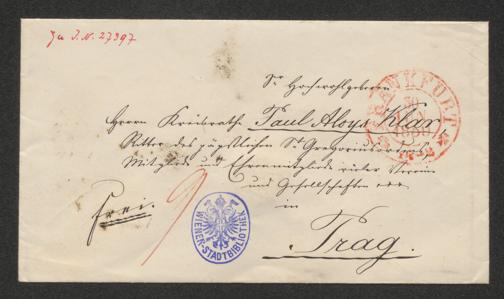 Zu I.N. 27397
Sr Hochwohlgeboren
Herrn Kreisrathe Paul Aloys Klar,
Ritter des päpstlichen St Gregorius-Ordens,
Mitgliede und Ehrenmitgliede vieler Vereine
und Gesellschaften
in
Prag.
Frei.
FRANKFURT
WIENER-STADTBIBLIOTHEK